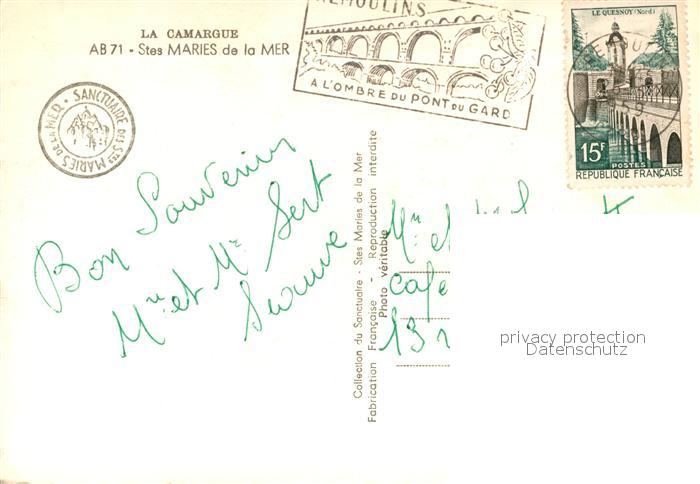 LA CAMARGUE
AB 71 - Stes MARIES de la MER
REMOULINS
A L'OMBRE DU PONT DU GARD
LE QUESNOY (Nord)
15F
POSTES
REPUBLIQUE FRANÇAISE
SANCTUAIRE DES Stes MARIES DE LA MER
Bon Souvenir
Mr et Me Sert
Collection du Sanctuaire - Stes Maries de la Mer
Fabrication Française - Reproduction interdite
Photo véritable
Mr et
Cafe
13
privacy protection
Datenschutz